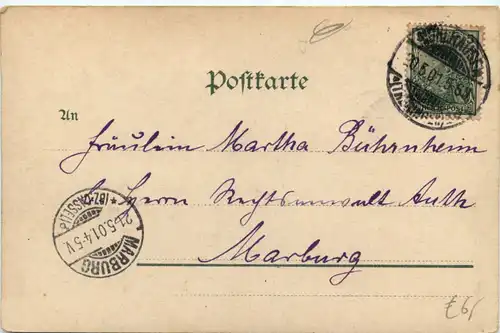 Postkarte
An
Fräulein Martha Bührnheim
Herrn Rechtsanwalt Auth
Marburg
MARBURG
21.5.01.4-5 V.
£6,